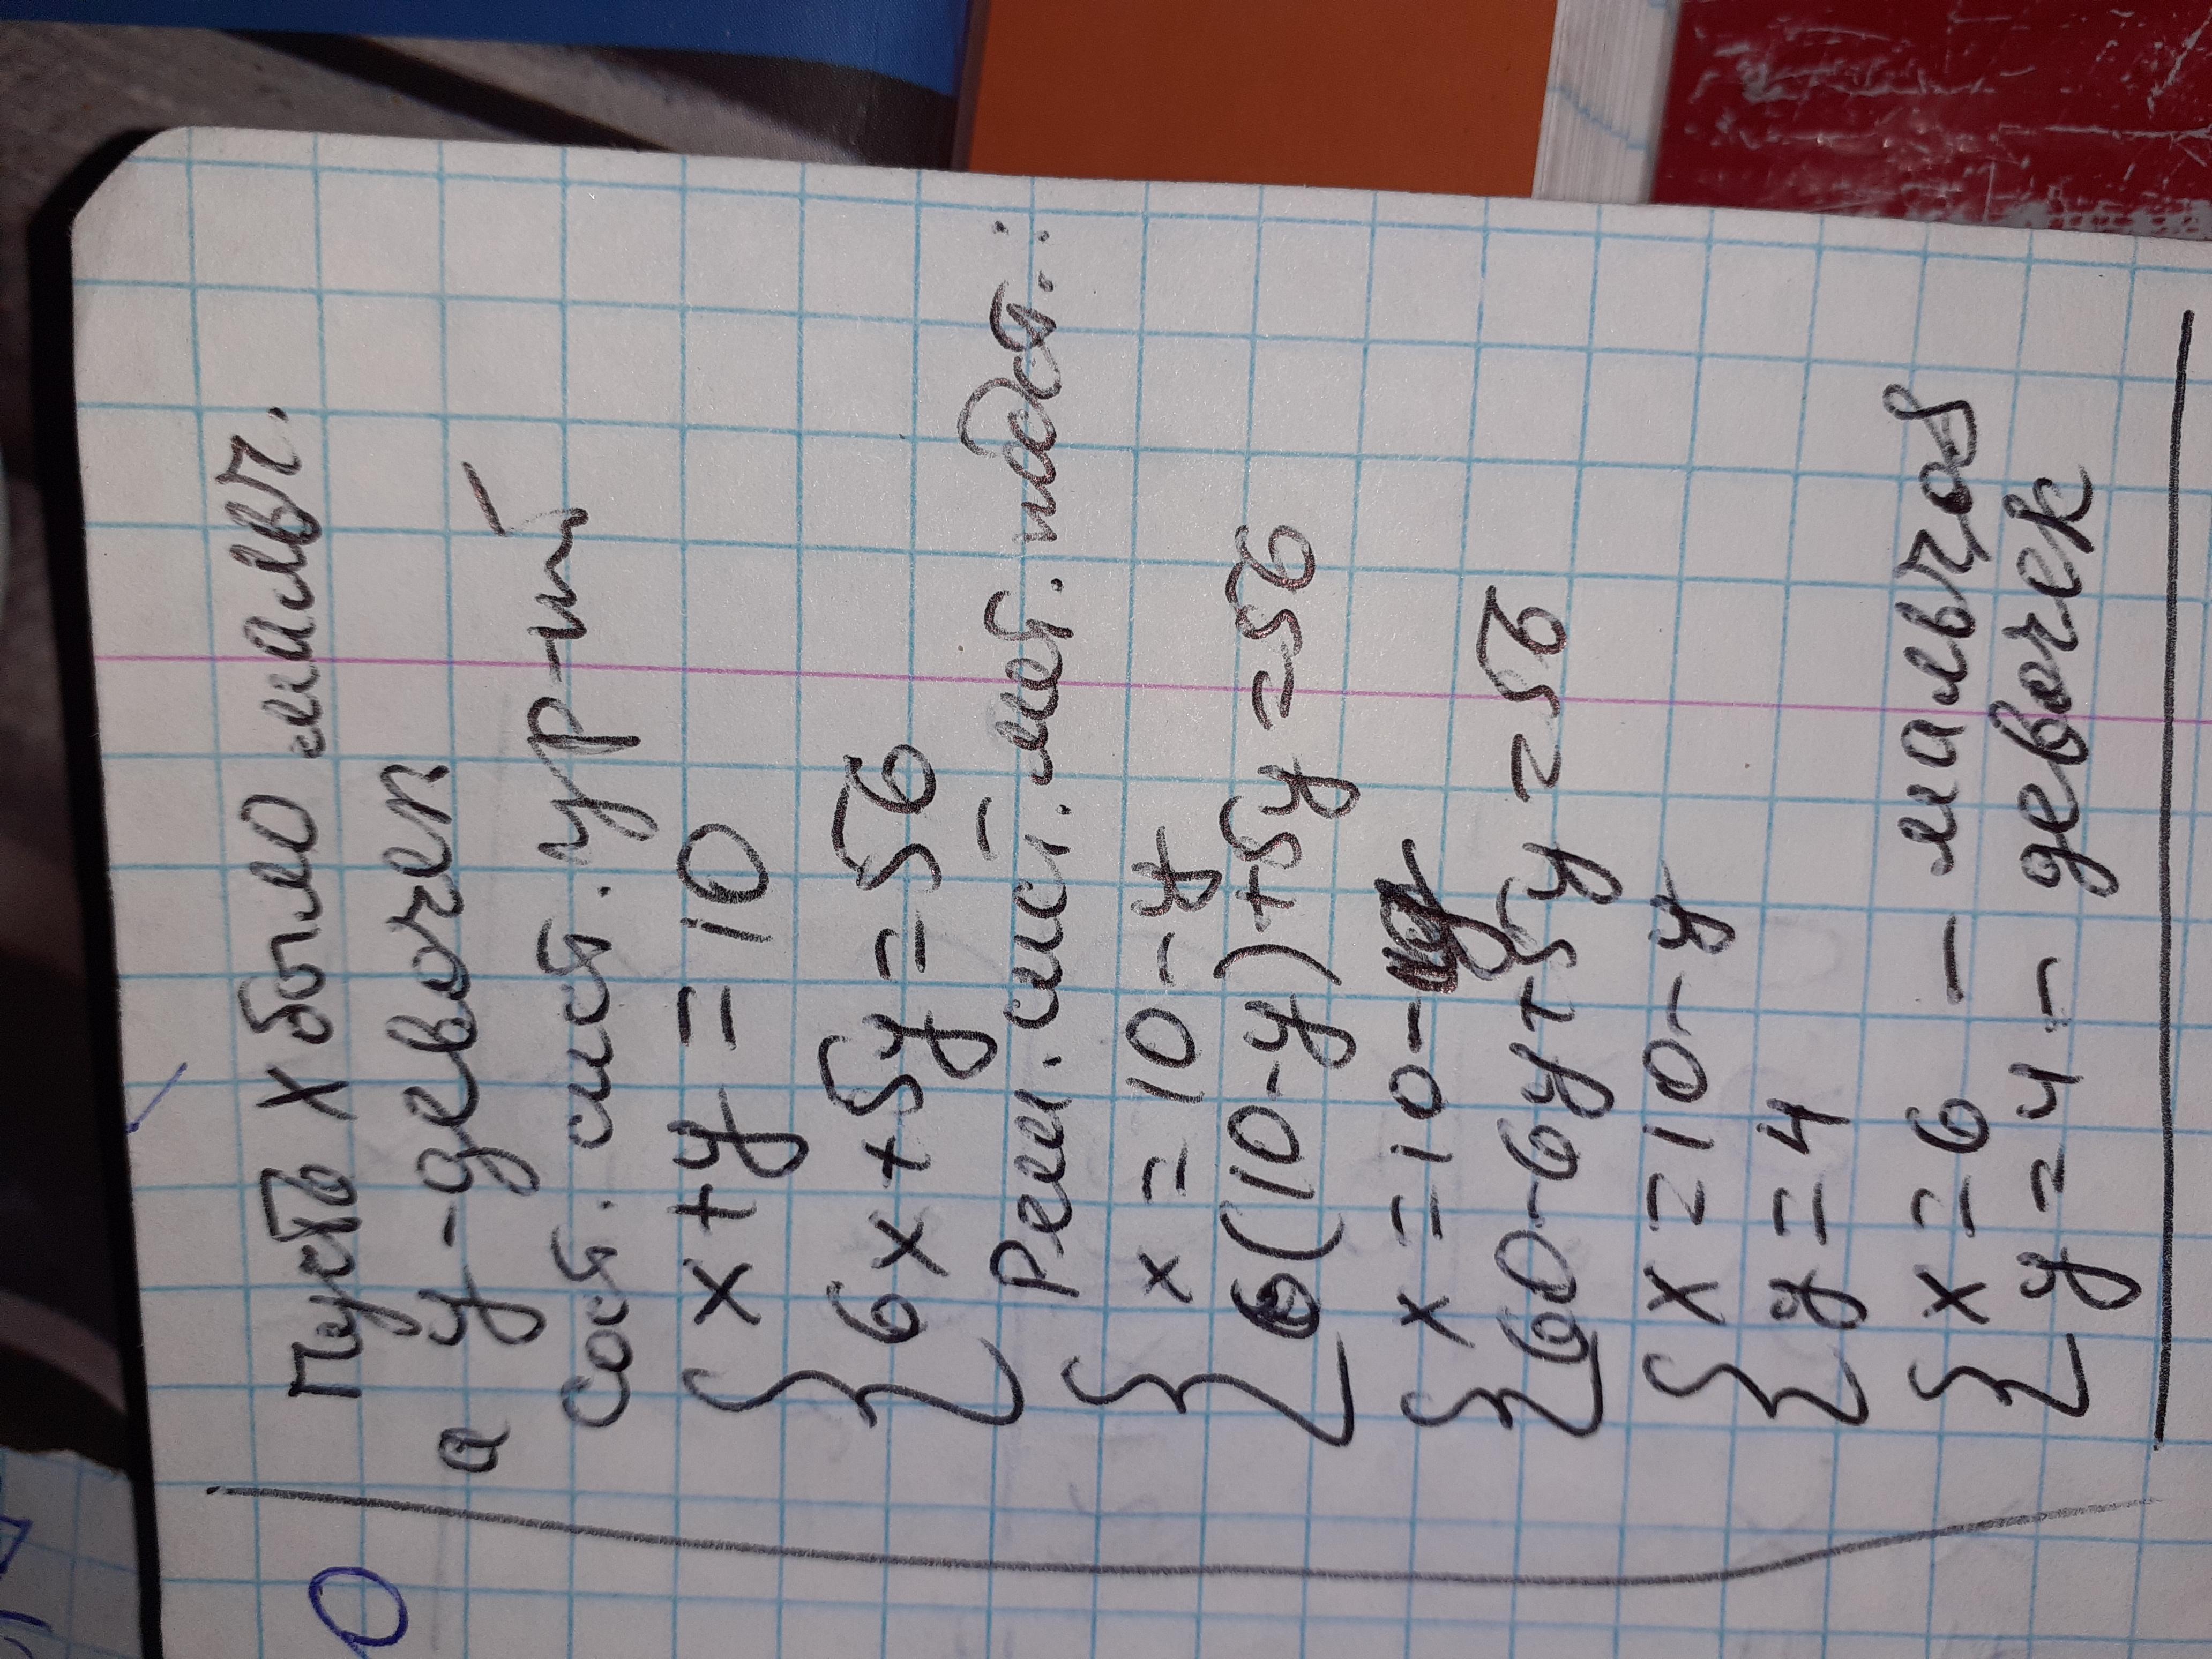 Пусть х было мальч.
а у - девочек
сост. сист. ур-ий
{ х + у = 10
{ 6х + 5у = 56
Реш. сист. мет. подст.:
{ х = 10 - у
{ 6(10-у) + 5у = 56
{ х = 10 - у
{ 60 - 6у + 5у = 56
{ х = 10 - у
{ у = 4
{ х = 6 - мальчов
{ у = 4 - девочек